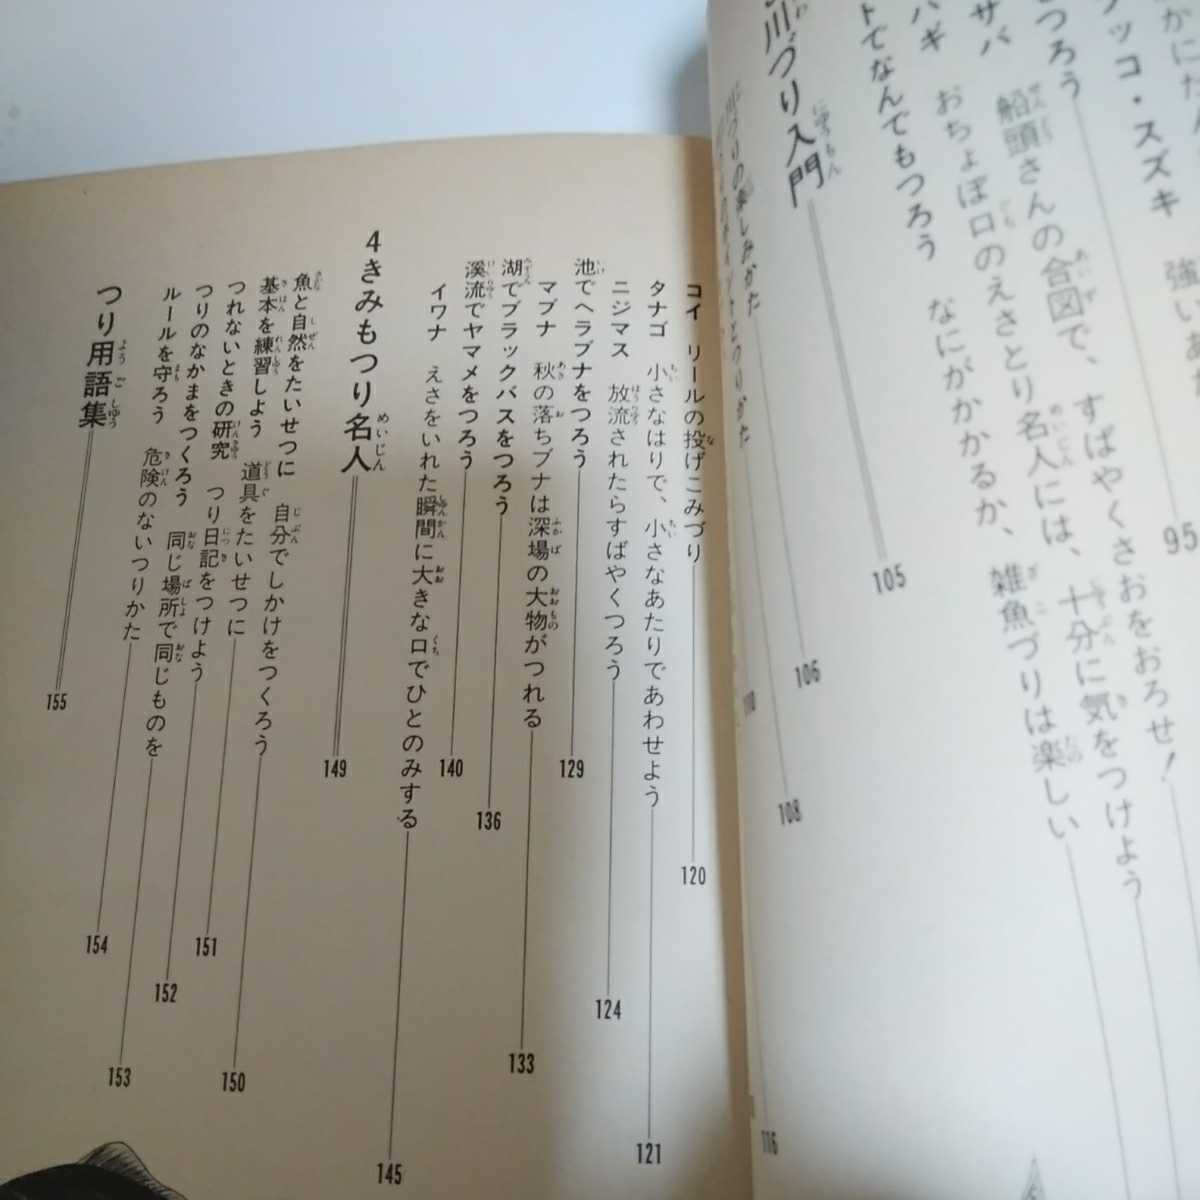 かにだん
ッコ・スズキ 強いあ
つろう 95
サバ 船頭さんの合図で、すばやくさおをおろせ!
ハギ おちょぼ口のえさとり名人には、十分に気をつけよう
トでなんでもつろう なにがかかるか、雑魚づりは楽しい
川づり入門 105
づりの楽しみかた 106
のポイントとつりかた 108
116
コイ リールの投げこみづり 120
タナゴ 小さなはりで、小さなあたりであわせよう 121
ニジマス 放流されたらすばやくつろう 124
池でヘラブナをつろう 129
マブナ 秋の落ちブナは深場の大物がつれる 133
湖でブラックバスをつろう 136
渓流でヤマメをつろう 140
イワナ えさをいれた瞬間に大きな口でひとのみする 145
4 きみもつり名人 149
魚と自然をたいせつに 自分でしかけをつくろう 150
基本を練習しよう 道具をたいせつに 151
つれないときの研究 つり日記をつけよう 152
つりのなかまをつくろう 同じ場所で同じものを 153
ルールを守ろう 危険のないつりかた 154
つり用語集 155